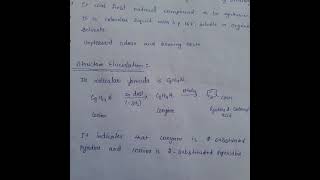 It was first natural compound to be synthesised
It is colourless liquid with b.p. 166°, soluble in organic
solvents
Unpleasant odour and burning taste
Structure Elucidation :
Its molecular formula is C₈H₁₇N
C₈H₁₇N Zn dust (-3H₂) C₈H₁₁N oxidn
Coniine Conyrine Pyridine-2-carboxylic
acid
It indicates that conyrine is 2-substituted
Pyridine and coniine is 2-substituted piperidine